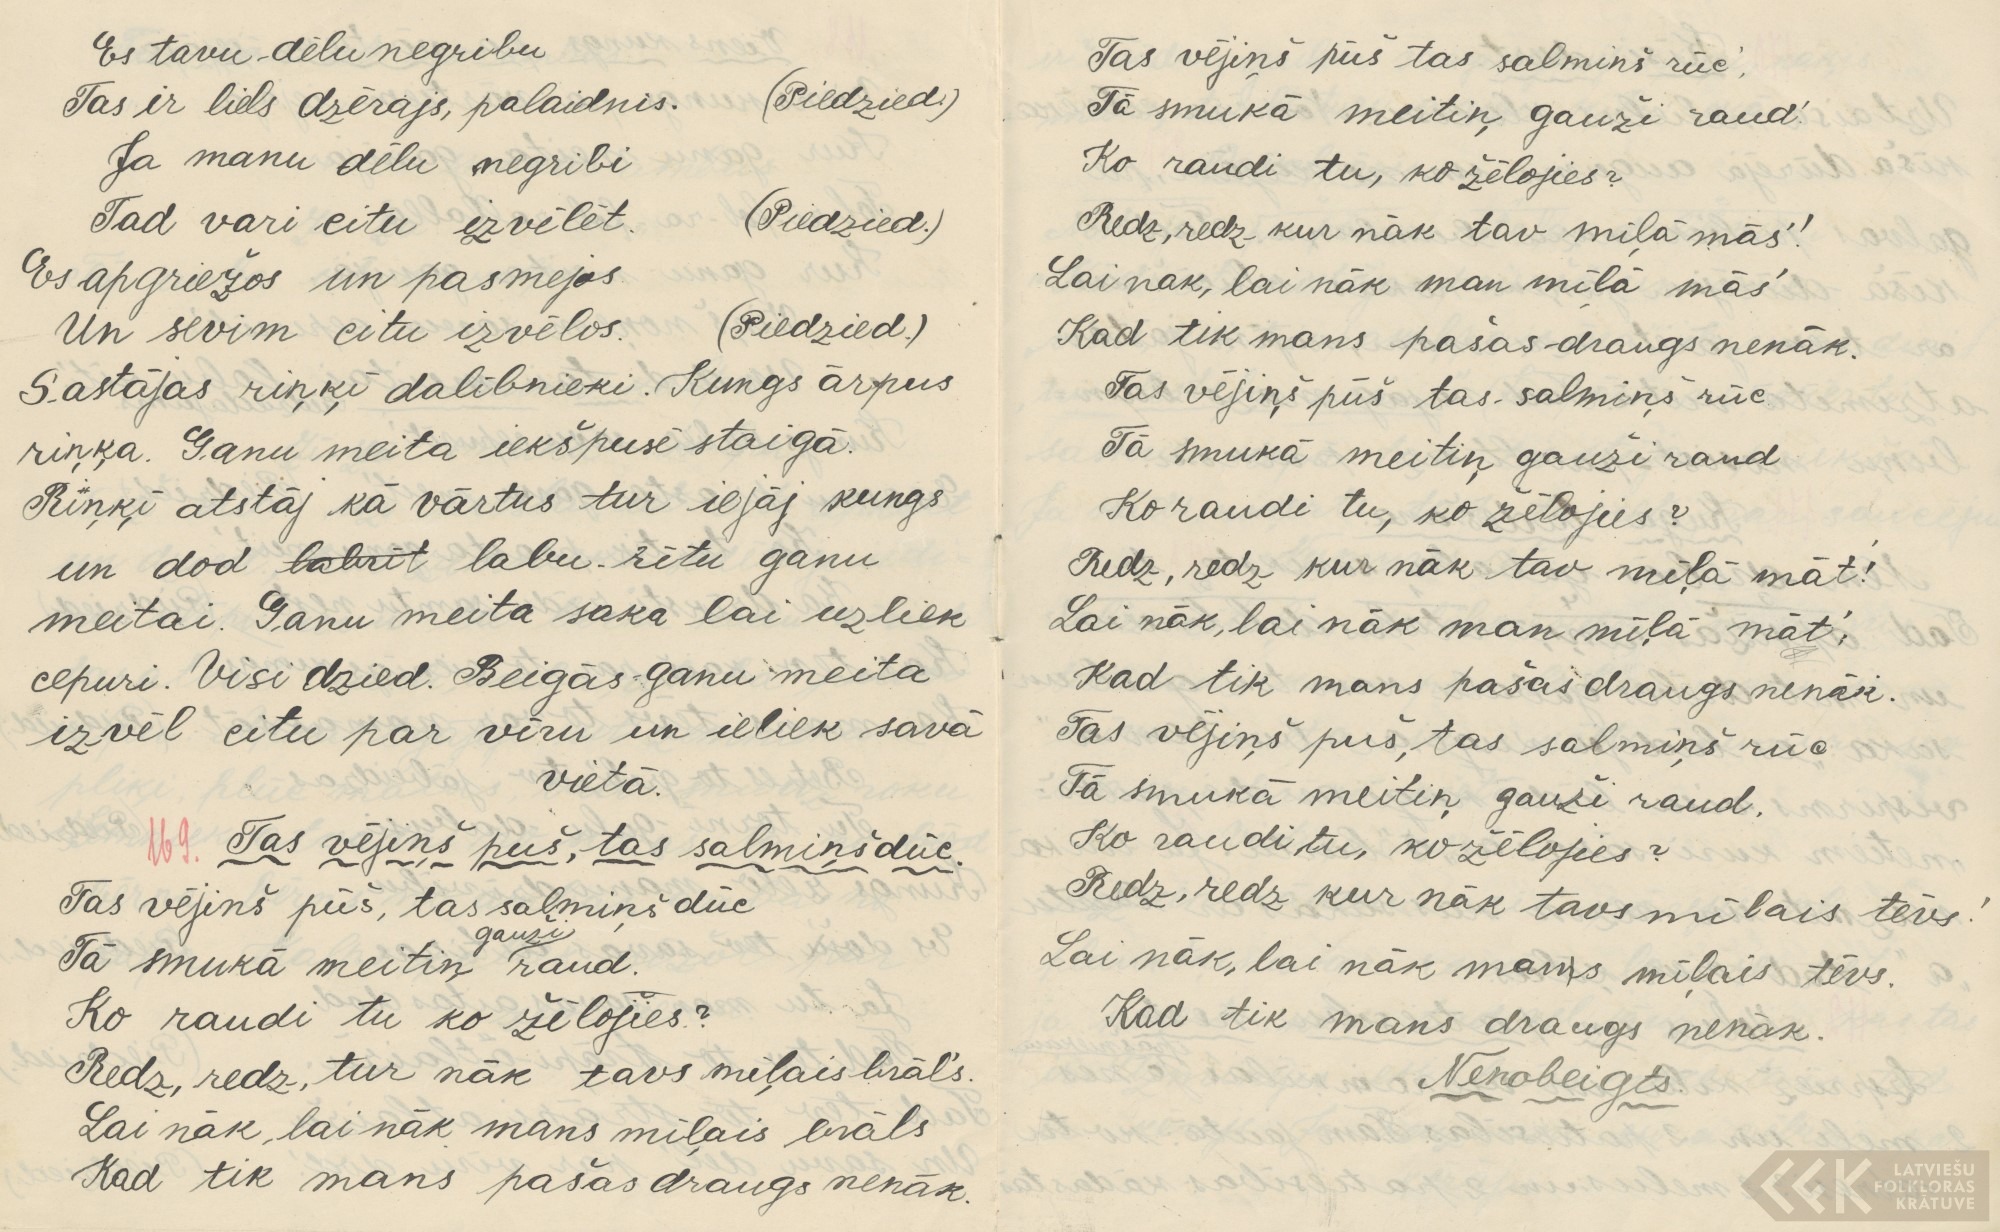 Es tavu dēlu negribu
Tas ir liels dzērājs, palaidnis. (Piedzied.)
Ja manu dēlu negribi
Tad vari citu izvēlēt. (Piedzied.)
Es apgriežos un pasmejos
Un sevim citu izvēlos. (Piedzied.)
Sastājas riņķī dalībnieki. Kungs ārpus
riņķa. Ganu meita iekšpusē staigā.
Riņķī atstāj kā vārtus tur iejāj kungs
un dod labrīt labu rītu ganu
meitai. Ganu meita saka lai uzliek
cepuri. Visi dzied. Beigās ganu meita
izvēl citu par vīru un ieliek savā
vietā.
169. Tas vējiņš pūš, tas salmiņš dūc.
Tas vējinš pūš, tas salmiņš dūc
gauži
Tā smukā meitiņ raud.
Ko raudi tu ko žēlojies?
Redz, redz, tur nāk tavs mīļais brāl's.
Lai nāk, lai nāk mans mīļais brāls
Kad tik mans pašas draugs nenāk.
Tas vējiņš pūš tas salmiņš rūc',
Tā smukā meitiņ gauži raud!
Ko raudi tu, ko žēlojies?
Redz, redz kur nāk tav mīļā mās'!
Lai nak, lai nāk man mīļā mās'
Kad tik mans pašas draugs nenāk.
Tas vējiņš pūš tas salmiņš rūc
Tā smukā meitiņ gauži raud
Ko raudi tu, ko žēlojies?
Redz, redz kur nāk tav mīļā māt'!
Lai nāk, lai nāk man mīļā māt',
Kad tik mans pašas draugs nenāk.
Tas vējiņš puš, tas salmiņš rūc
Tā smukā meitiņ gauži raud.
Ko raudi tu, ko žēlojies?
Redz, redz kur nāk tavs mīlais tēvs!
Lai nāk, lai nāk mans mīļais tēvs.
Kad tik mans draugs nenāk.
Nenobeigts.
LATVIEŠU
FOLKLORAS
KRĀTUVE